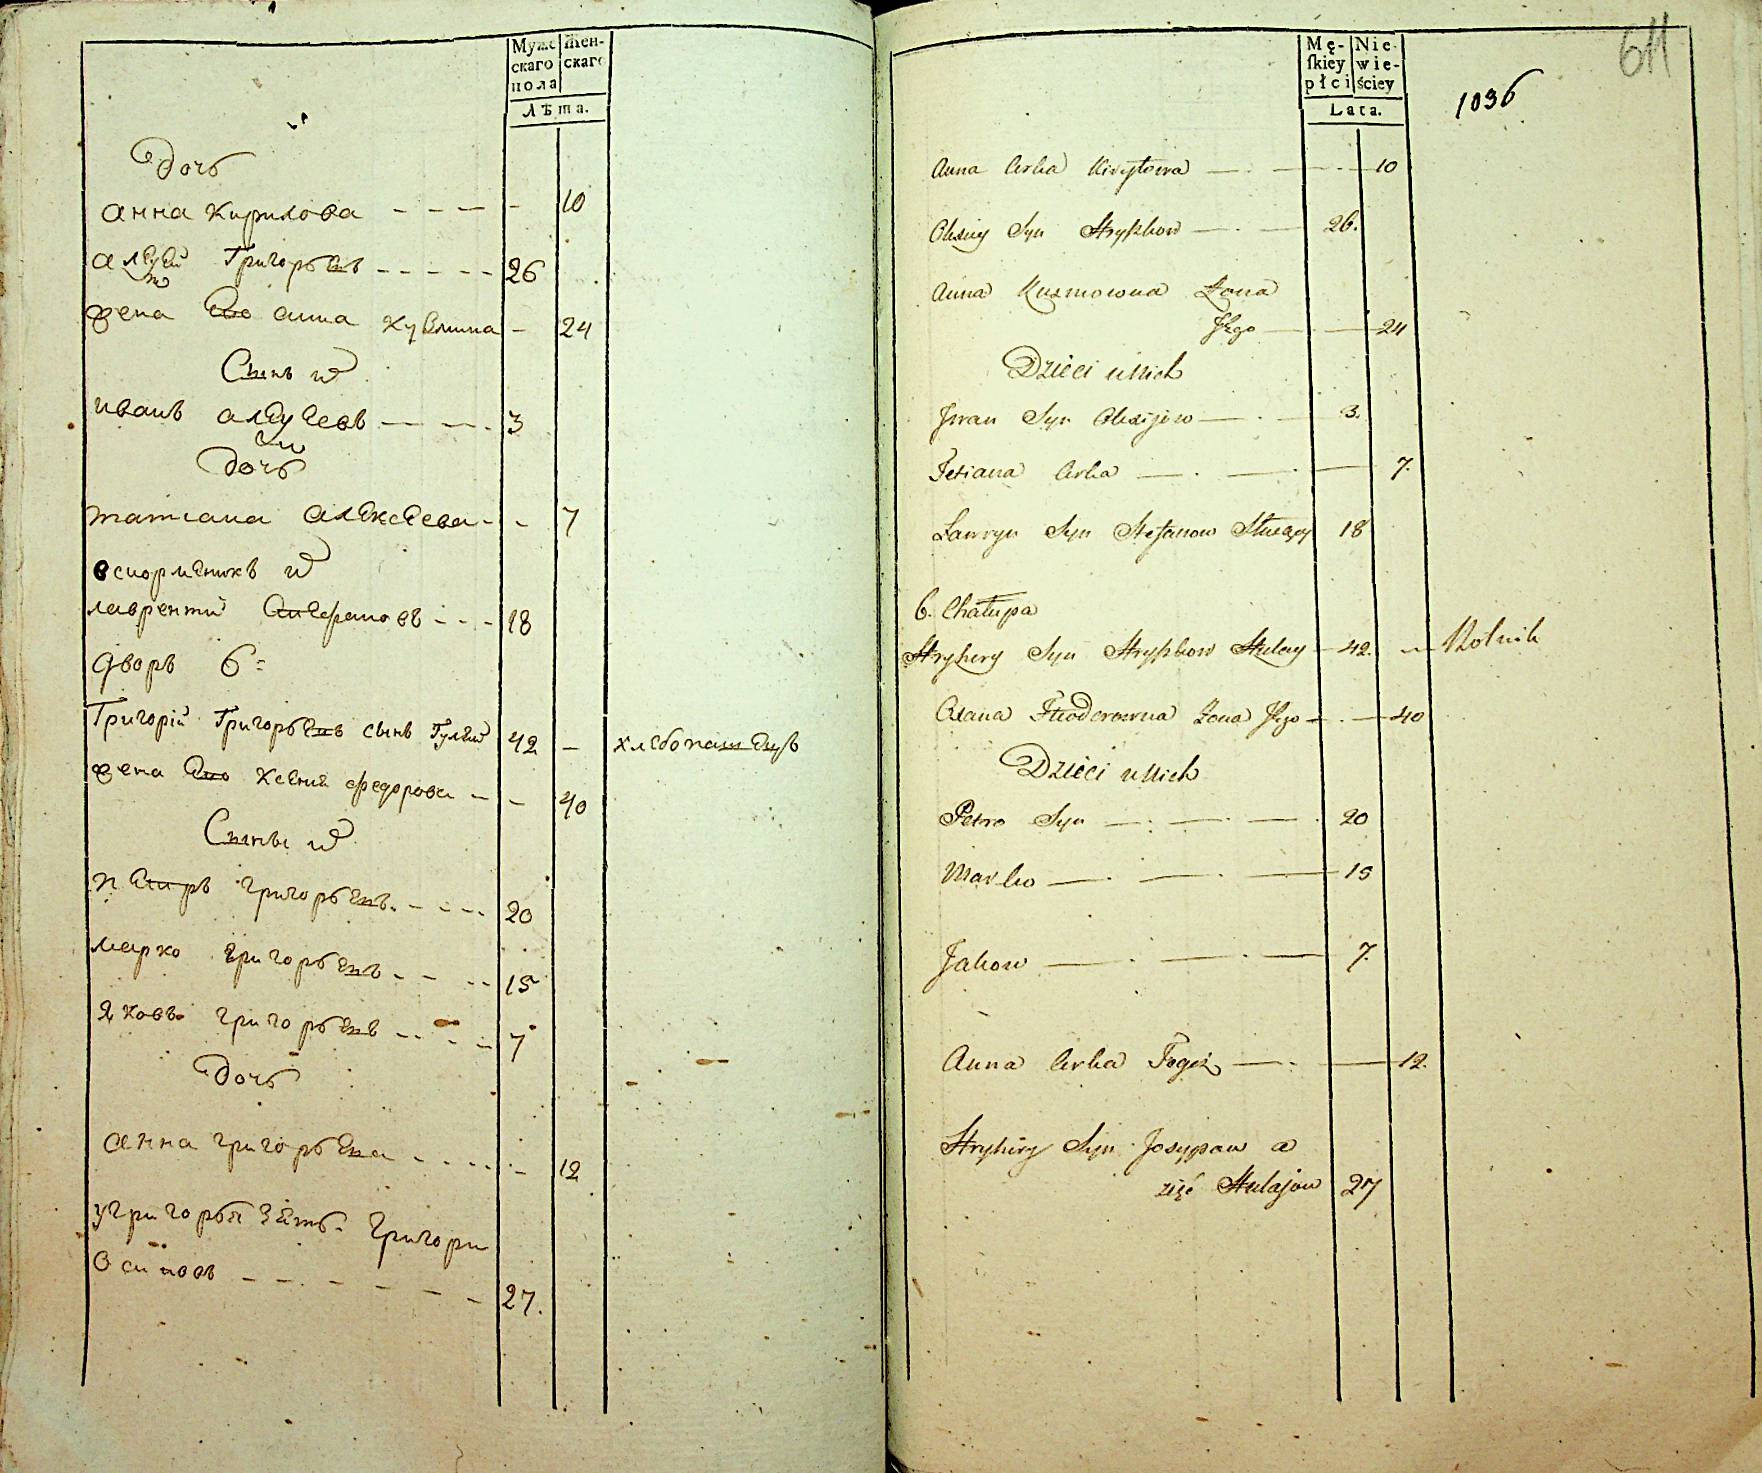 Муже
скаго
пола
Жен-
скаго
Лѣта.
Дочь
анна Кирилова - - - - 10
Григорьевъ - - - - - 26
жена Его анна кузмина - 24
Сынъ и
иванъ - - - 3
Дочь
татиана алексеева - - 7
лаврентий Стефановъ - - - 18
дворъ 6=
Григорій Григорьевъ сынъ Гулый 42 - хлебопашецъ
жена Его Ксения федорова - - 40
Сыны и
петръ григорьевъ - - - - 20
марко григорьевъ - - - - 15
Яковъ григорьевъ - - - - 7
Дочь
анна григорьева - - - - - 12
у григорья зеть григори
Осиповъ - - - - - - 27.
Mę-
ſkiey
płci
Nie-
wie-
ściey
Lata.
611
1036
Anna Corka Kiryłowa — . — . — 10
Olexiey Syn Hryſzkow — . — 26.
Anna Kuzmowna Żona
Jego — — 24
Dzieci u Nich
Jwan Syn Olexijow — . — 3.
Tetiana Corka — . — . — 7.
Lawryn Syn Stefanow 18
6. Chałupa
Hryhory Syn Hryſzkow Hulay — 42. — Rolnik
Oxana Fheodorowna Żona Jego — . — 40
Dzieci u Nich
Petro Syn — . — . — . 20
Marko — . — . — 15
Jakow — . — . — 7.
Anna Corka Tegoż — . — 12.
Hryhory Syn Josypow a
zięć Hulajow 27